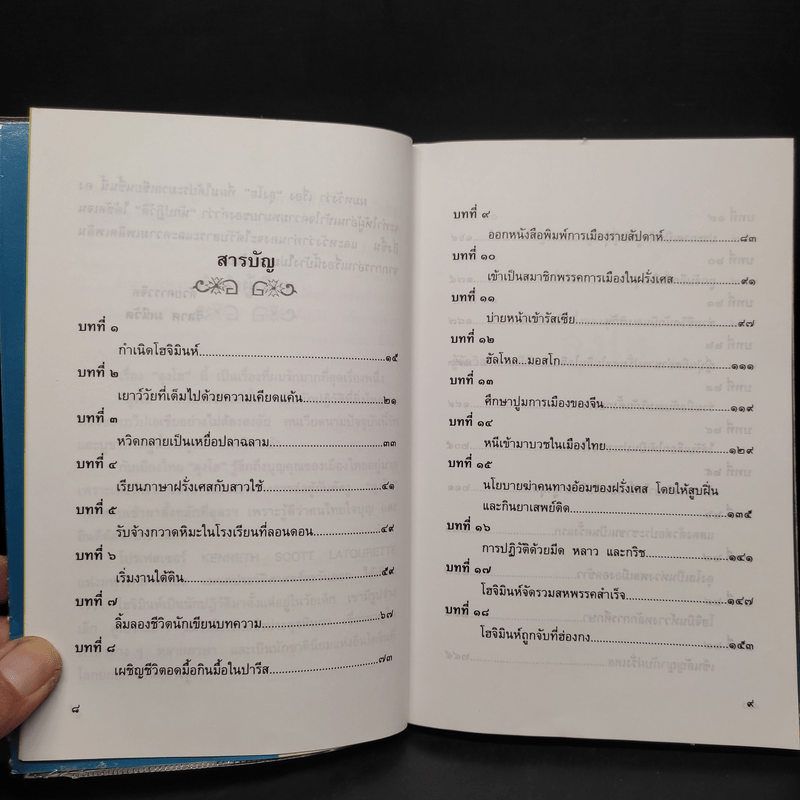 สารบัญ
บทที่ ๑
กำเนิดโฮจิมินห์.......................๑๕
บทที่ ๒
เยาว์วัยที่เต็มไปด้วยความเคียดแค้น...........๒๑
บทที่ ๓
หวิดกลายเป็นเหยื่อปลาฉลาม...................๓๓
บทที่ ๔
เรียนภาษาฝรั่งเศสกับสาวใช้...................๔๑
บทที่ ๕
รับจ้างกวาดหิมะในโรงเรียนที่ลอนดอน...........๔๙
บทที่ ๖
เริ่มงานใต้ดิน.......................๕๙
บทที่ ๗
ลิ้มลองชีวิตนักเขียนบทความ...................๖๗
บทที่ ๘
เผชิญชีวิตอดมื้อกินมื้อในปารีส.................๗๓
๘
บทที่ ๙
ออกหนังสือพิมพ์การเมืองรายสัปดาห์.............๘๓
บทที่ ๑๐
เข้าเป็นสมาชิกพรรคการเมืองในฝรั่งเศส...........๙๑
บทที่ ๑๑
บ่ายหน้าเข้ารัสเซีย.....................๙๗
บทที่ ๑๒
ฮัลโหล...มอสโก.......................๑๑๑
บทที่ ๑๓
ศึกษาปูมการเมืองของจีน...................๑๑๙
บทที่ ๑๔
หนีเข้ามาบวชในเมืองไทย...................๑๒๙
บทที่ ๑๕
นโยบายฆ่าคนทางอ้อมของฝรั่งเศส โดยให้สูบฝิ่น
และกินยาเสพย์ติด.......................๑๓๕
บทที่ ๑๖
การปฏิวัติด้วยมีด หลาว และกริช...............๑๔๑
บทที่ ๑๗
โฮจิมินห์จัดรวมสหพรรคสำเร็จ.................๑๔๗
บทที่ ๑๘
โฮจิมินห์ถูกจับที่ฮ่องกง...................๑๕๓
๙